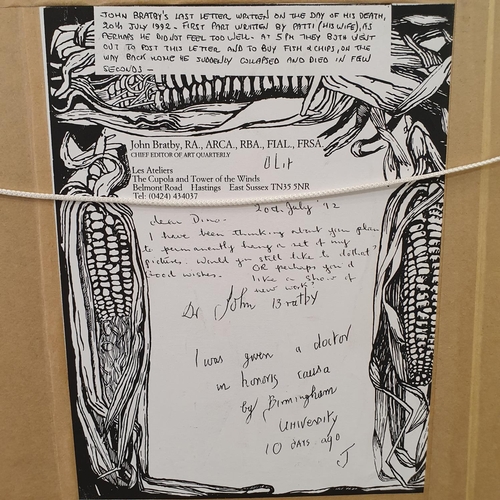 JOHN BRATBY'S LAST LETTER WRITTEN ON THE DAY OF HIS DEATH,
20TH JULY 1992 - FIRST PART WRITTEN BY PATTI (HIS WIFE), AS
PERHAPS HE DID NOT FEEL TOO WELL. AT 5 PM THEY BOTH WENT
OUT TO POST THIS LETTER AND TO BUY FISH & CHIPS, ON THE
WAY BACK HOME HE SUDDENLY COLLAPSED AND DIED IN FEW
SECONDS -
John Bratby, RA., ARCA., RBA., FIAL., FRSA.
CHIEF EDITOR OF ART QUARTERLY
D Lit
Les Ateliers
The Cupola and Tower of the Winds
Belmont Road Hastings East Sussex TN35 5NR
Tel: (0424) 434037
20th July '92
dear Dino -
I have been thinking about your plan
to permanently hang a set of my
pictures. Would you still like to do that?
Good wishes. OR perhaps you'd
like a show of
new work?
Dr John Bratby
I was given a doctor
in honoris causa
by Birmingham
University
10 days ago
J